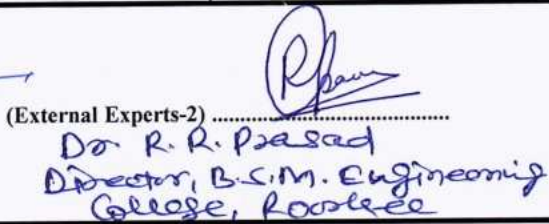 (External Experts-2) ..........................................
Dr. R. R. Prasad
Director, B.S.M. Engineering
College, Roorkee